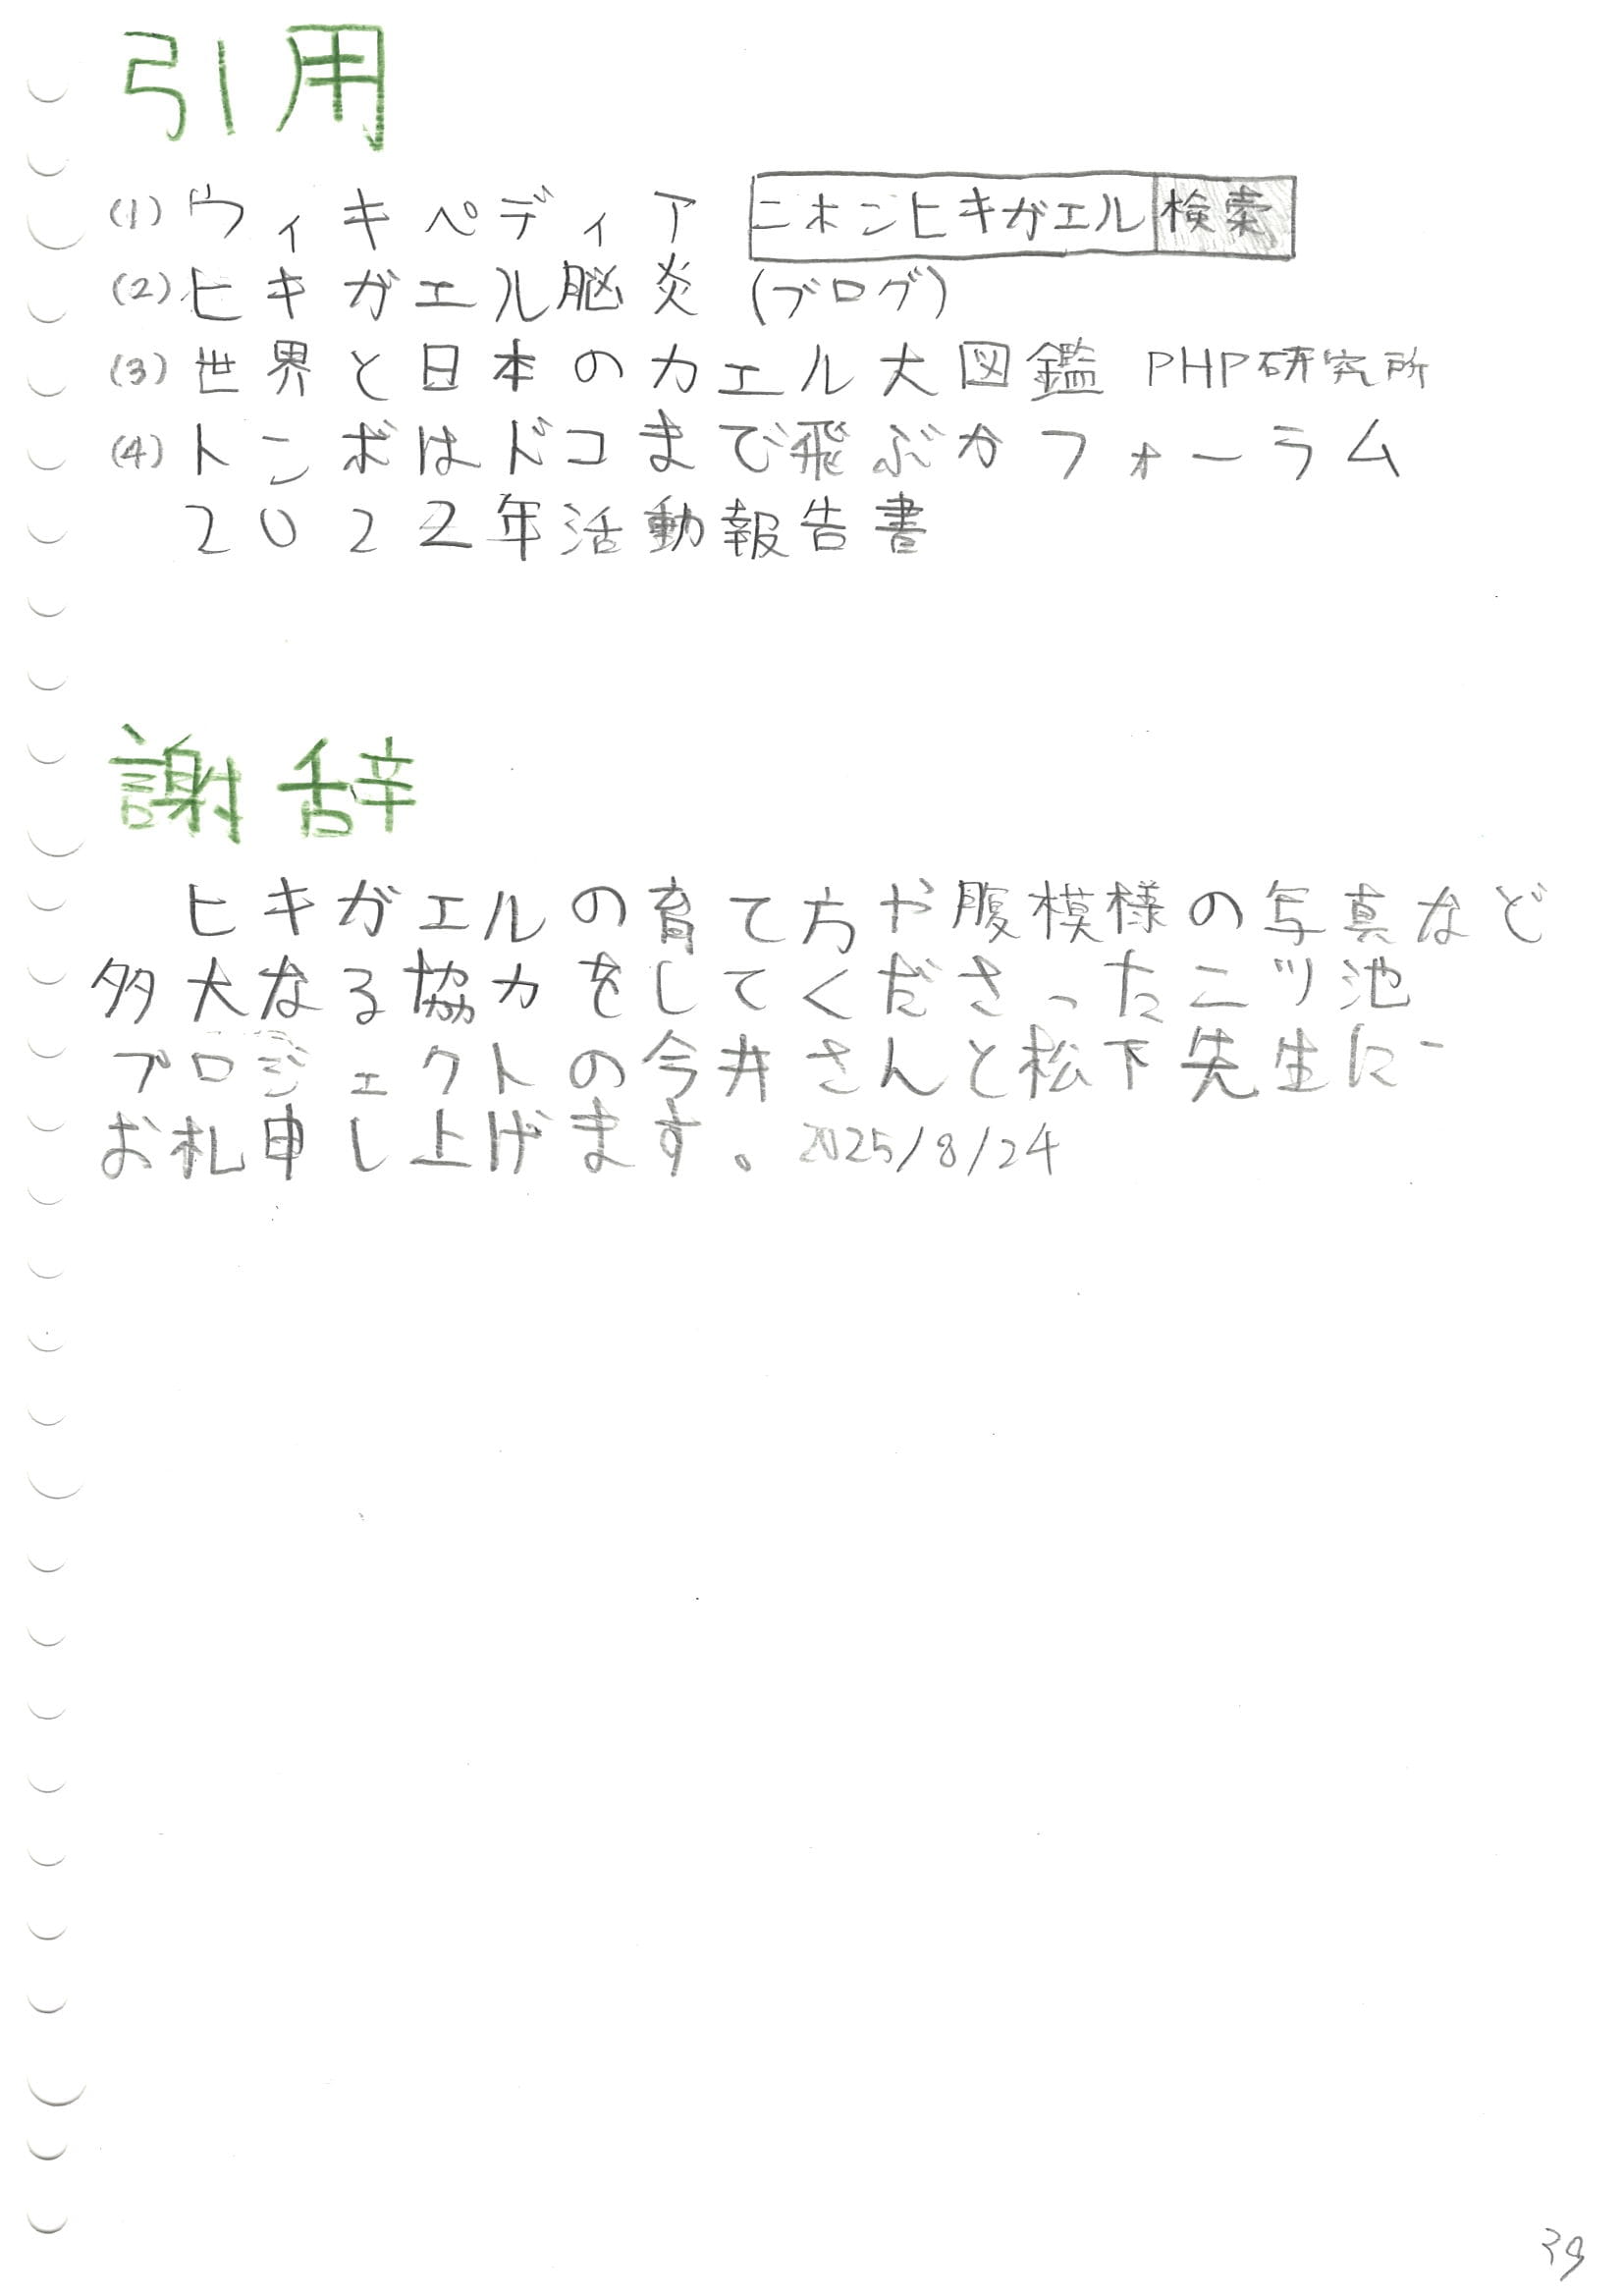 引用
(1) ウィキペディア ニホンヒキガエル 検索
(2) ヒキガエル脳炎 (ブログ)
(3) 世界と日本のカエル大図鑑 PHP研究所
(4) トンボはドコまで飛ぶかフォーラム
2022年活動報告書
謝辞
ヒキガエルの育て方や腹模様の写真など
多大なる協力をしてくださった二ツ池
プロジェクトの今井さんと松下先生に
お礼申し上げます。 2025/8/24